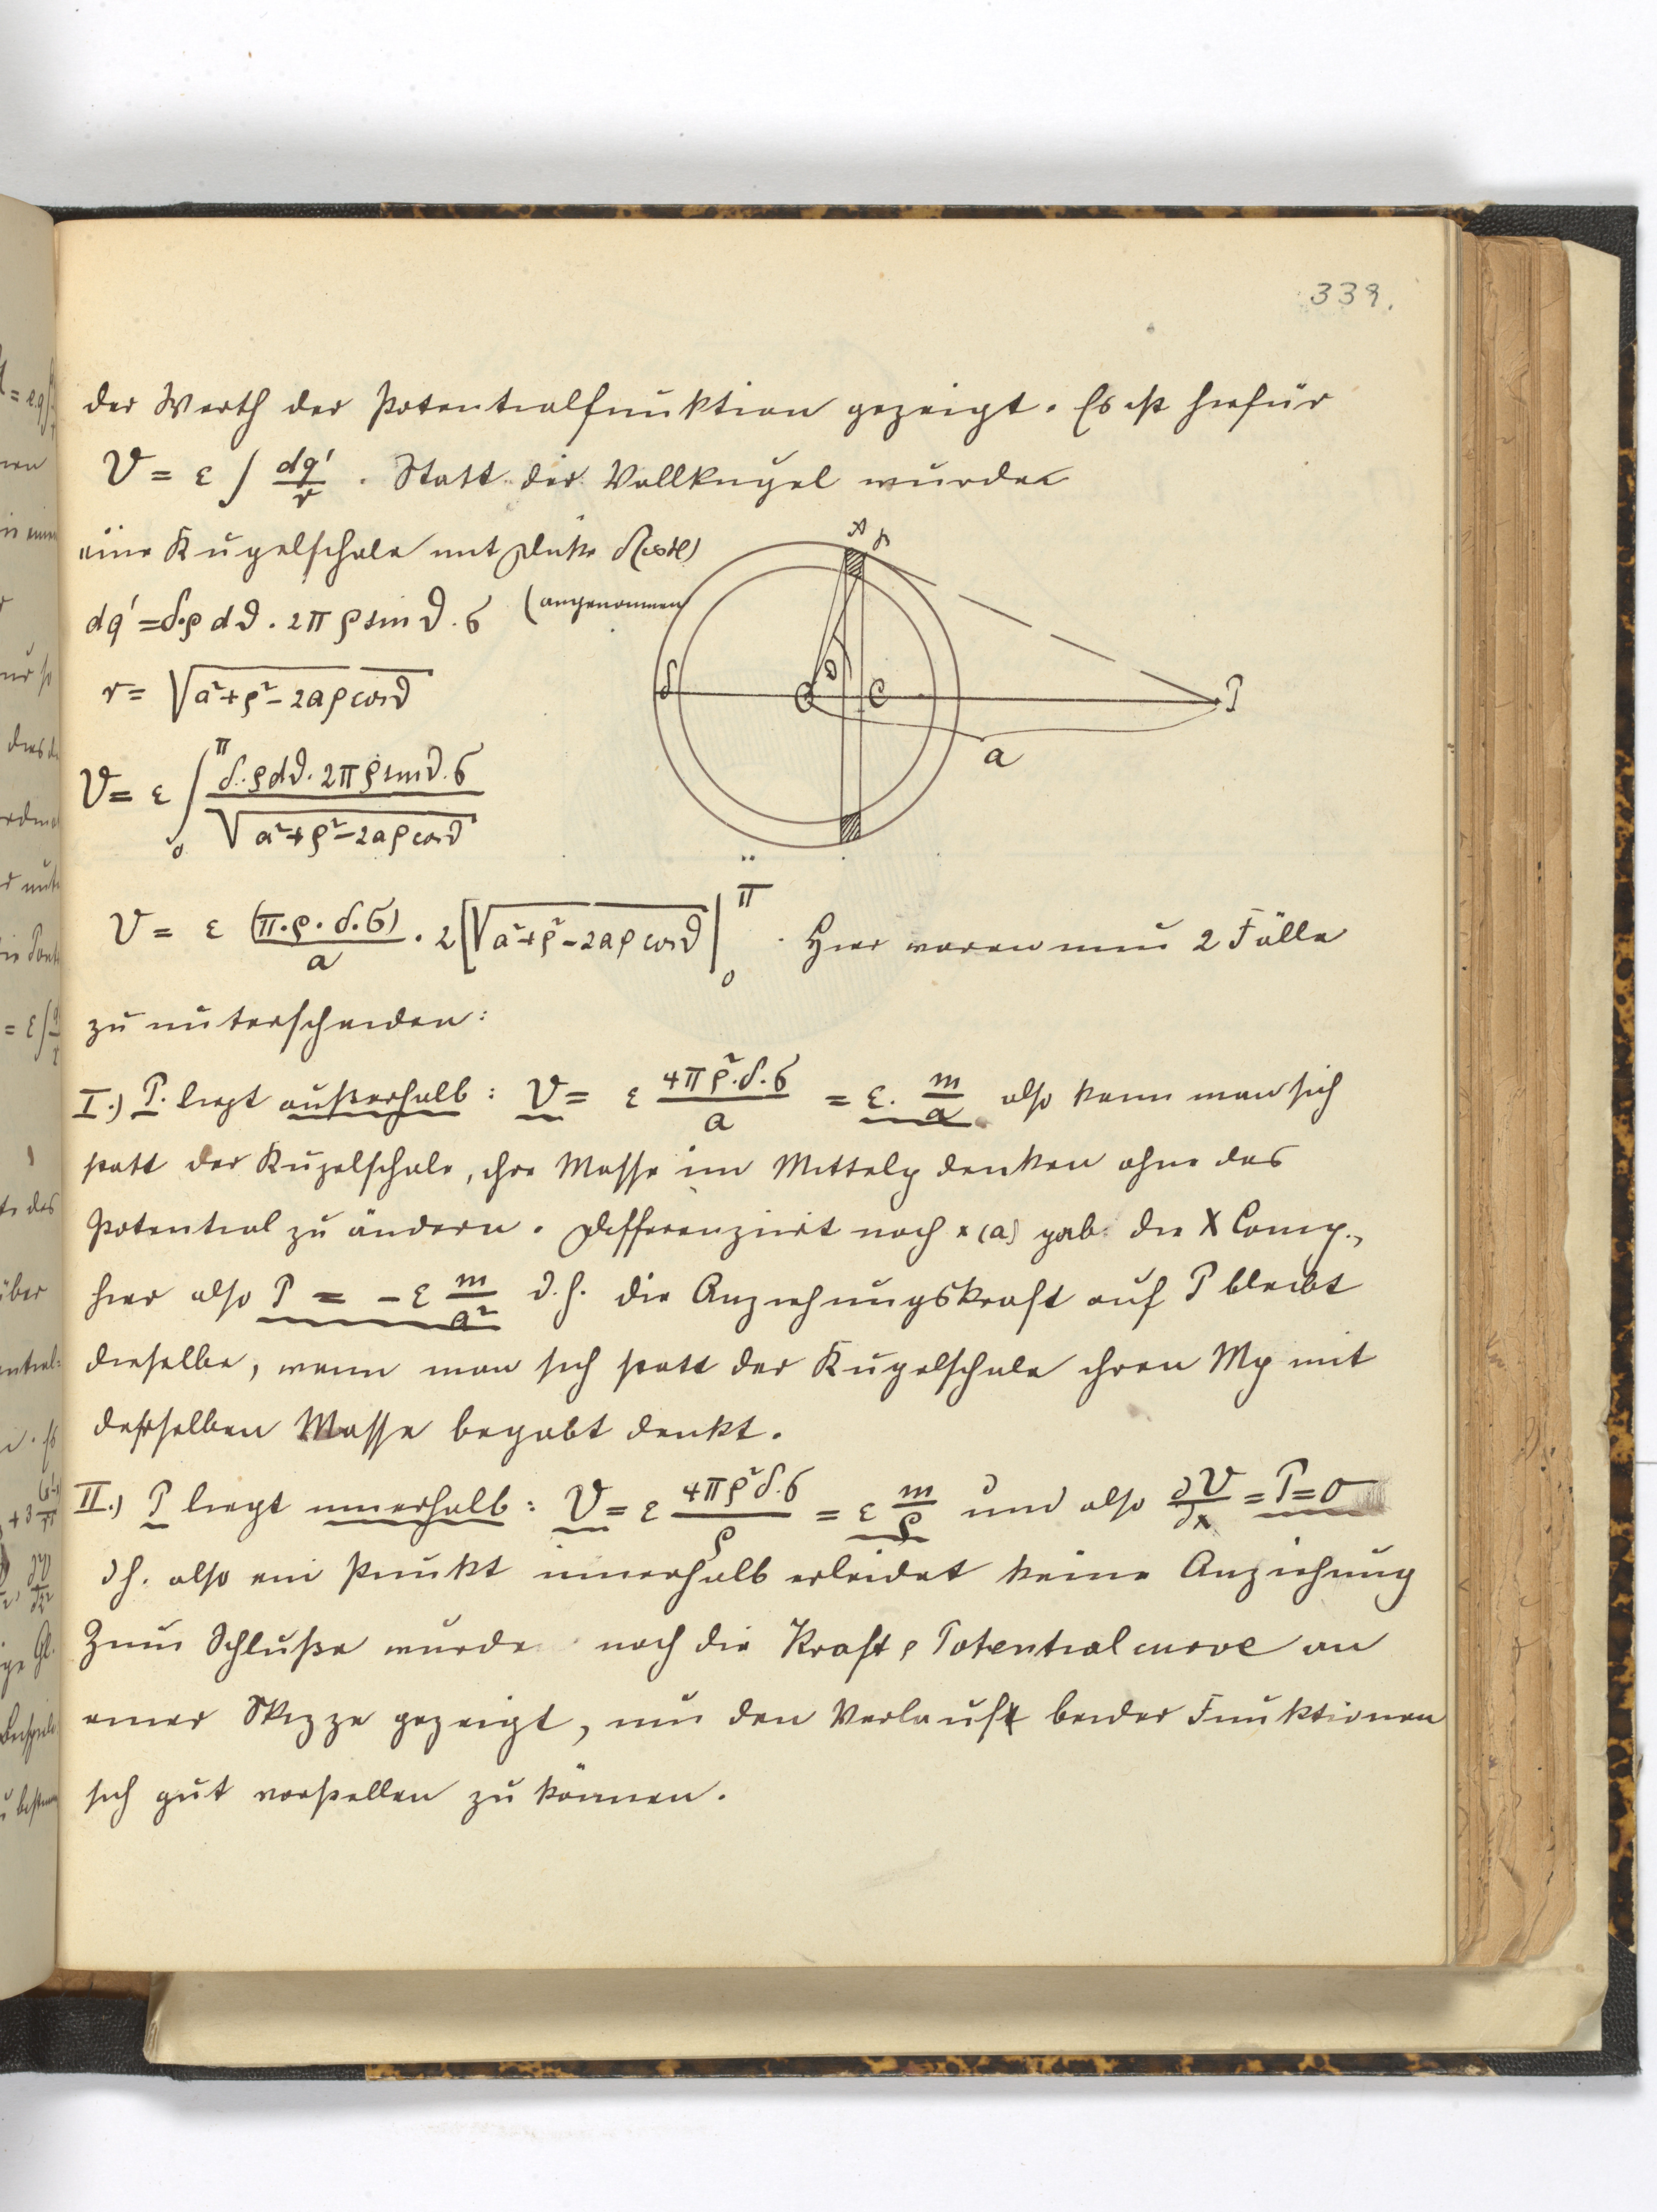 339.
der Werth der Potentialfunktion gezeigt. Es ist hiefür
V = ε ∫ dq'/r . Statt der Vollkugel wurde
eine Kugelschale mit Dicke δ
(angenommen
dq' = δ·ρ dϑ . 2π ρ sin ϑ . σ
r = √(a² + ρ² - 2aρ cos ϑ)
V = ε ∫₀^π (δ·ρdϑ · 2πρ sin ϑ · σ) / √(a² + ρ² - 2aρ cos ϑ)
δ O ϑ C P
a
V = ε (π·ρ·δ·σ)/a · 2 [√(a² + ρ² - 2aρ cos ϑ)|₀^π . Hier waren nun 2 Fälle
zu unterscheiden:
I.) P. liegt außerhalb : V = ε 4πρ²·δ·σ/a = ε · m/a also kann man sich
statt der Kugelschale, ihre Masse im Mittelp denken ohne das
Potential zu ändern. Differenzirt nach x (a) gab die X Comp.,
hier also P = - ε m/a² d.h. die Anziehungskraft auf P bleibt
dieselbe, wenn man sich statt der Kugelschale ihren Mp mit
derselben Masse begabt denkt.
II.) P liegt innerhalb : V = ε 4πρ²δ·σ/ρ = ε m/ρ und also ∂V/∂x = P = 0
dh. also ein Punkt innerhalb erleidet keine Anziehung
Zum Schluße wurde noch die Kraft & Potentialcurve an
einer Skizze gezeigt, um den Verlauf beider Funktionen
sich gut vorstellen zu können.